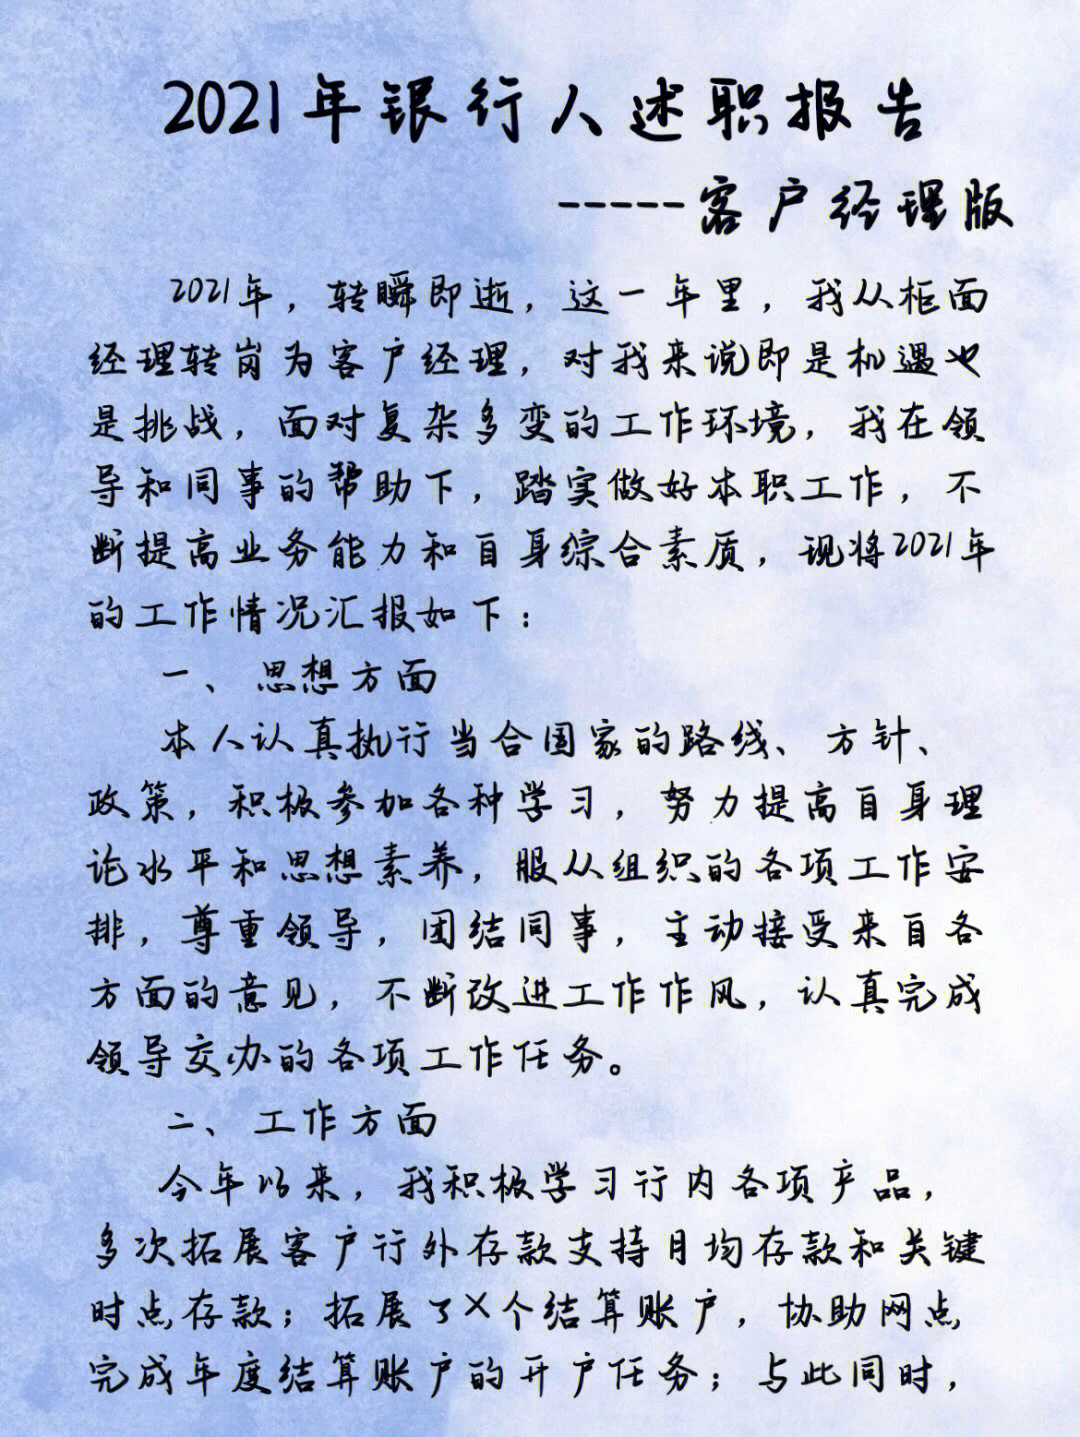 2021年银行人述职报告
-----客户经理版
2021年，转瞬即逝，这一年里，我从柜面
经理转岗为客户经理，对我来说即是机遇也
是挑战，面对复杂多变的工作环境，我在领
导和同事的帮助下，踏实做好本职工作，不
断提高业务能力和自身综合素质，现将2021年
的工作情况汇报如下：
一、思想方面
本人认真执行当合国家的路线、方针、
政策，积极参加各种学习，努力提高自身理
论水平和思想素养，服从组织的各项工作安
排，尊重领导，团结同事，主动接受来自各
方面的意见，不断改进工作作风，认真完成
领导交办的各项工作任务。
二、工作方面
今年以来，我积极学习行内各项产品，
多次拓展客户行外存款支持月均存款和关键
时点存款；拓展了X个结算账户，协助网点
完成年度结算账户的开户任务；与此同时，